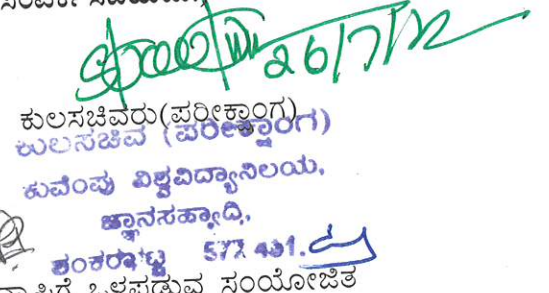 26/7/12
ಕುಲಸಚಿವರು(ಪರೀಕ್ಷಾಂಗ)
ಕುಲಸಚಿವ (ಪರೀಕ್ಷಾಂಗ)
ಕುವೆಂಪು ವಿಶ್ವವಿದ್ಯಾನಿಲಯ,
ಜ್ಞಾನಸಹ್ಯಾದ್ರಿ,
ಶಂಕರಘಟ್ಟ 577 451.
ಒಳಪಡುವ ಸಂಯೋಜಿತ